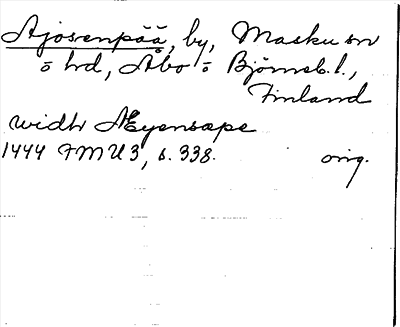 Ajosenpää, by, Masku sn
o hd, Åbo o Björneb. l.,
Finland
widh Æyensæpe
1444 FMU 3, s. 338. orig.